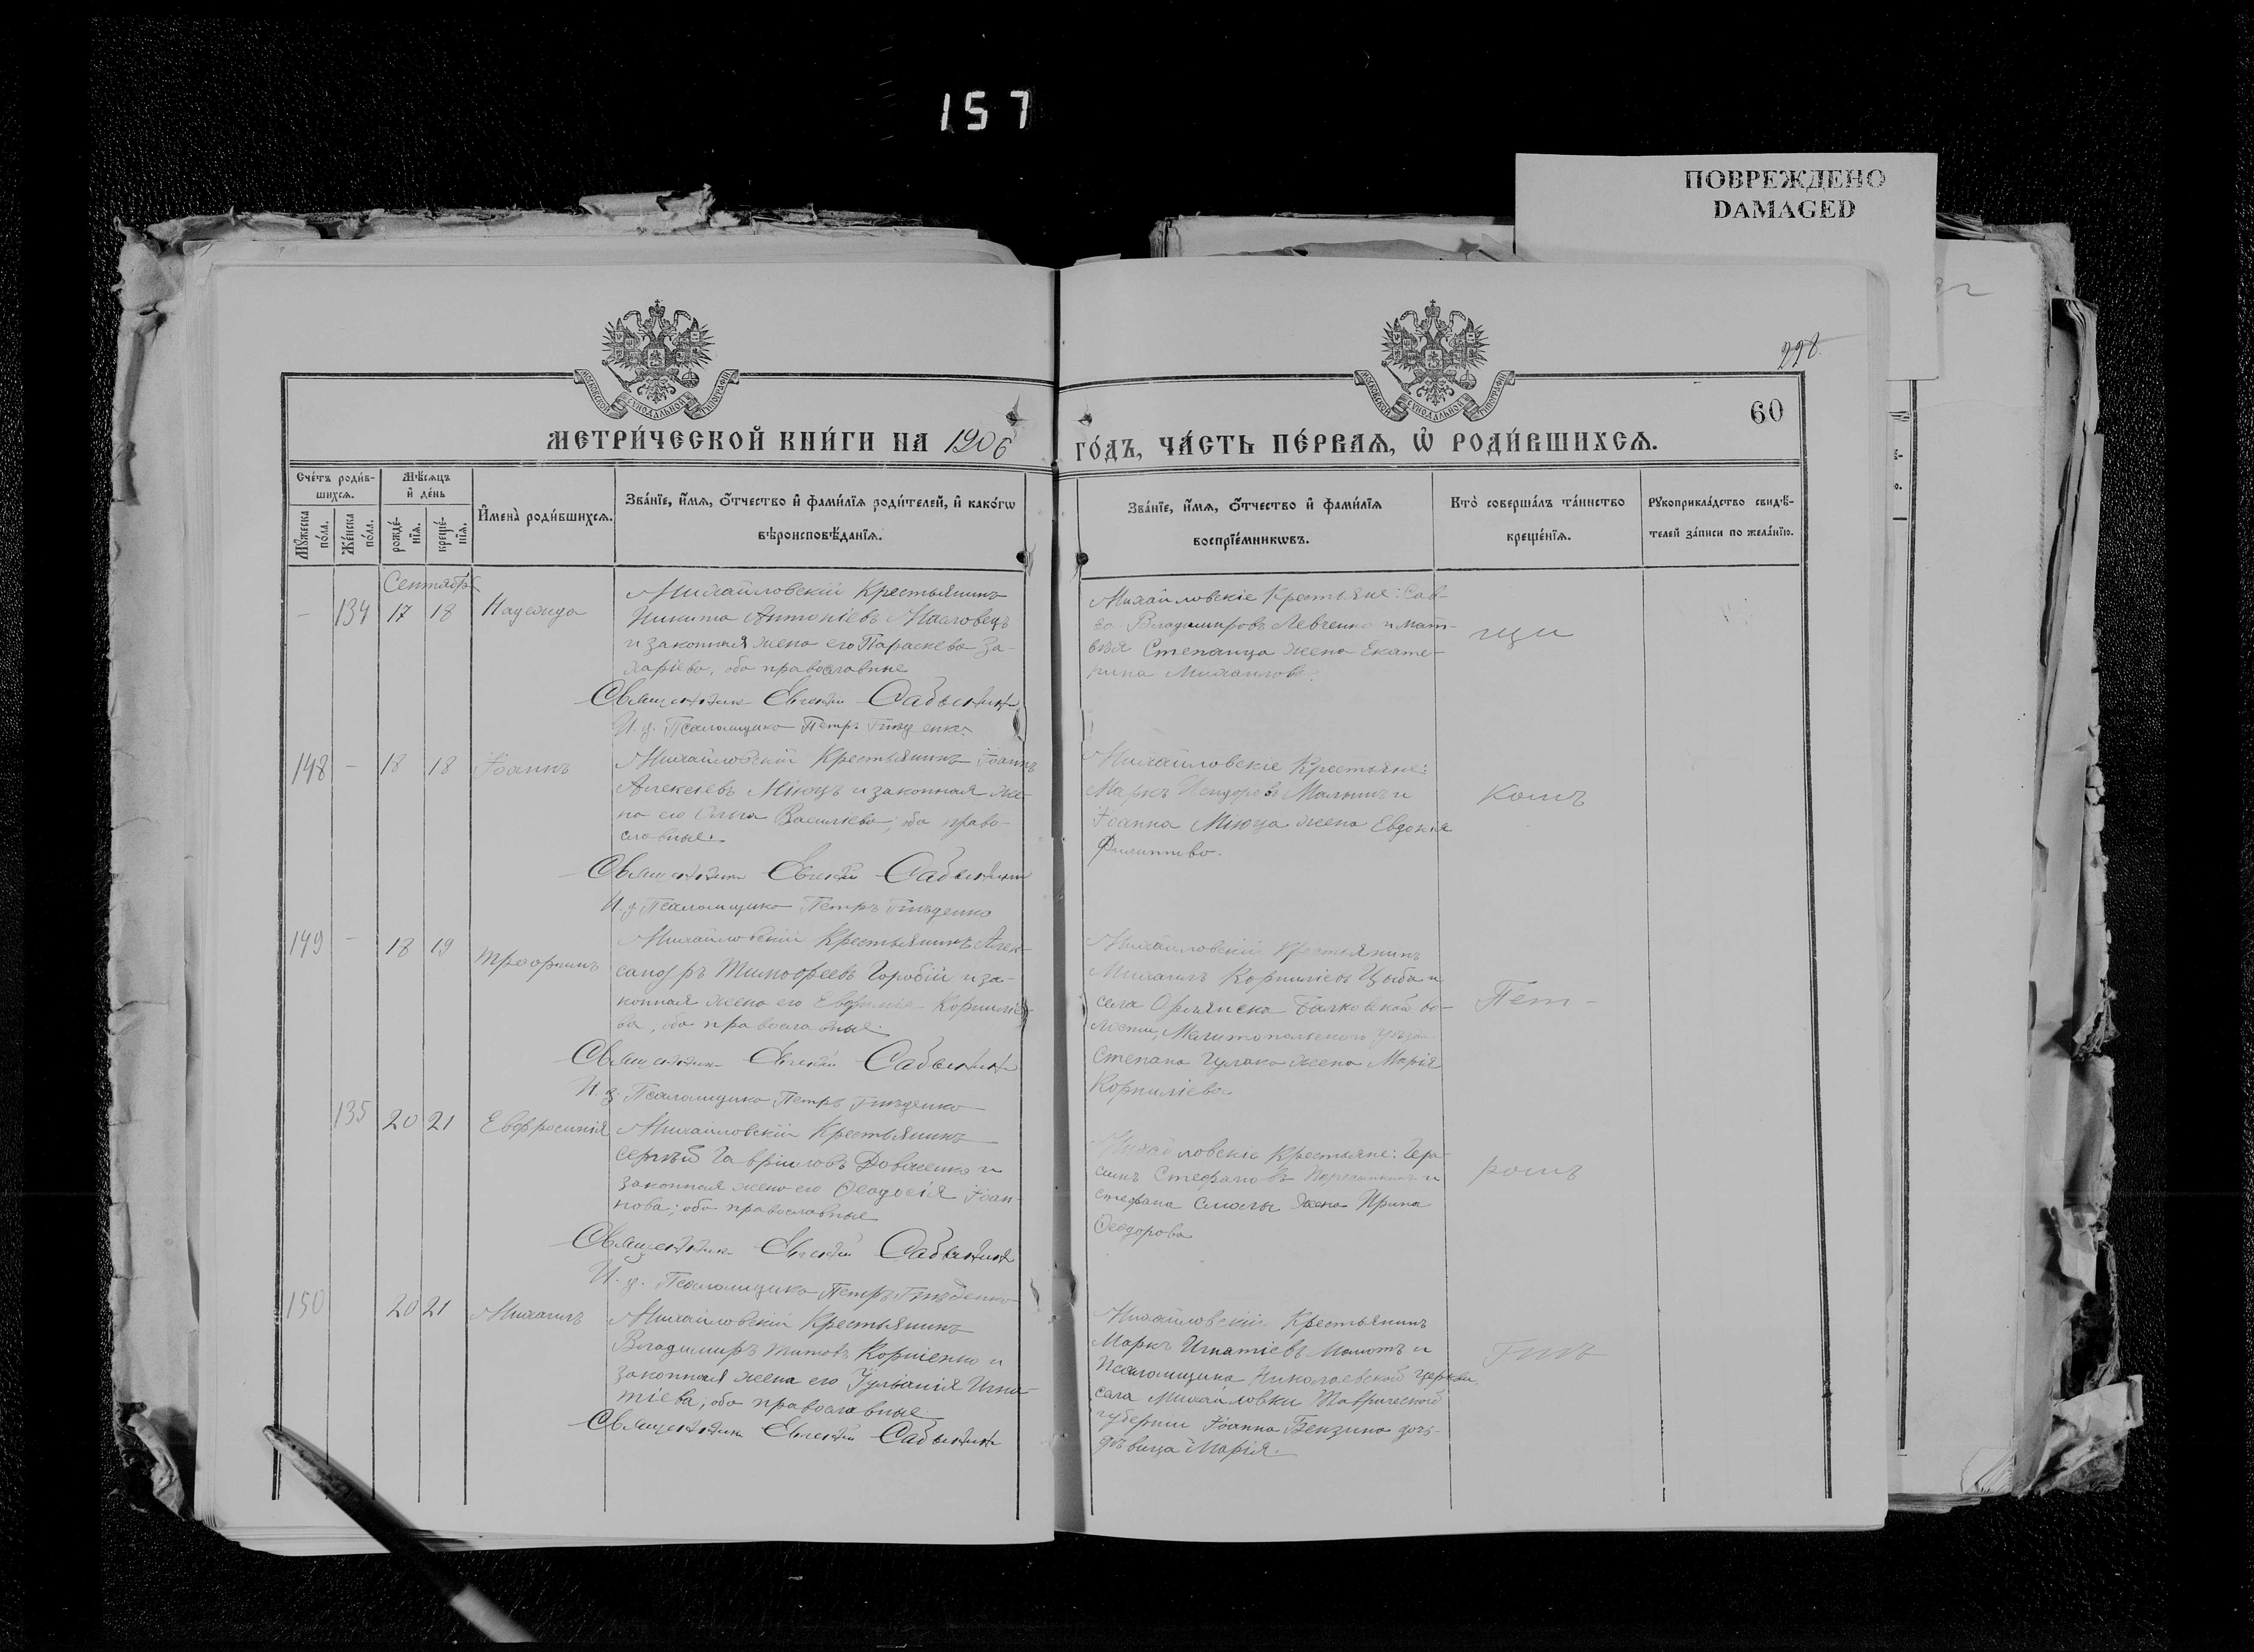 157
ПОВРЕЖДЕНО
DAMAGED
298.
60
МОСКОВСКОЙ СѴНОДАЛЬНОЙ ТИПОГРАФІИ
МОСКОВСКОЙ СѴНОДАЛЬНОЙ ТИПОГРАФІИ
МЕТРИ́ЧЕСКОЙ КНИ́ГИ НА 1906
ГО́ДЪ, ЧА́СТЬ ПЕ́РВАѦ, Ѡ РОДИ́ВШИХСѦ.
Сче́тъ роди́в-
шихсѧ.
Мꙋ́жеска по́ла.
Же́нска по́ла.
Мѣ́сѧцъ
и҆ де́нь
рожде́-
нїѧ.
креще́-
нїѧ.
И҆мена̀ роди́вшихсѧ.
Зва́нїе, и҆́мѧ, ѻ҆́тчество и҆ фами́лїѧ роди́телей, и҆ како́гѡ
вѣроисповѣ́данїѧ.
Зва́нїе, и҆́мѧ, ѻ҆́тчество и҆ фами́лїѧ
воспрїе́мникѡвъ.
Кто̀ соверша́лъ та́инство
креще́нїѧ.
Рꙋкоприкла́дство свидѣ́-
телей за́писи по жела́нїю.
Сентябрь
– 134 17 18 Надежда
Михайловскій Крестьянинъ
Никита Антоніевъ
и законная жена его Параскева За-
харіева, оба православные
Священникъ Евгеній
И. д. Псаломщика Петръ Гнѣденко
Михайловскіе Крестьяне: Сав-
ва Владимировъ Левченко и Мат-
вѣя Степанца жена Екате-
рина Михаилова.
щи
148 – 18 18 Іоаннъ
Михайловскій Крестьянинъ Іоаннъ
Алексіевъ Міюцъ и законная же-
на его Ольга Василіева, оба право-
славные.
Священникъ Евгеній
И. д. Псаломщика Петръ Гнѣденко
Михайловскіе Крестьяне:
Маркъ Исидоровъ и
Іоанна Міюца жена Евдокія
Филиппова.
149 – 18 19 Трофимъ
Михайловскій Крестьянинъ Алек-
сандръ Тимофеевъ Горобій и за-
конная жена его Евфимія Корниліе-
ва, оба православные.
Священникъ Евгеній
И. д. Псаломщика Петръ Гнѣденко
Михайловскій Крестьянинъ
Михаилъ Корниліевъ Цыба и
села Орлянска Балковской во-
лости, Мелитопольскаго уѣзда
Степана жена Марія
Корниліева.
Пет-
135 20 21 Евфросинія
Михайловскій Крестьянинъ
Сергѣй Гавріиловъ Довженко и
законная жена его Ѳеодосія Іоан-
нова; оба православные
Священникъ Евгеній
И. д. Псаломщика Петръ Гнѣденко
Михайловскіе Крестьяне: Гера-
симъ Стефановъ и
Стефана жена Ирина
Ѳеодорова
150 20 21 Михаилъ
Михайловскій Крестьянинъ
Владимиръ Титовъ Корніенко и
законная жена его Іуліанія Игна-
тіева; оба православные.
Священникъ Евгеній
Михайловскій Крестьянинъ
Маркъ Игнатіевъ и
Псаломщика Николаевской церкви,
села Михайловки Таврической
губерніи Іоанна Бензина дочь
дѣвица Марія.
Гнѣ